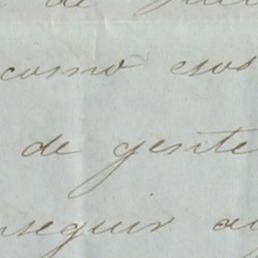 de
como esos
de gente
nseguir